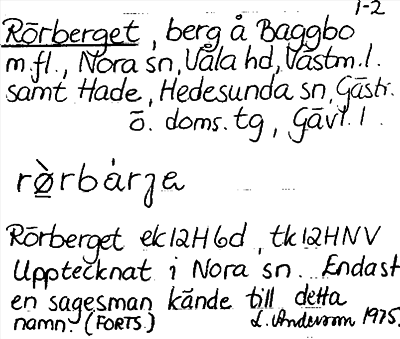 1-2
Rörberget, berg å Baggbo
m.fl., Nora sn, Våla hd, Västm.l.
samt Hade, Hedesunda sn, Gästr.
ö. doms. tg, Gävl. l.
rö̀rbárʒa
Rörberget ek12H6d, tk12HNV
Upptecknat i Nora sn. Endast
en sagesman kände till detta
namn. (FORTS.) L. Anderson 1975.